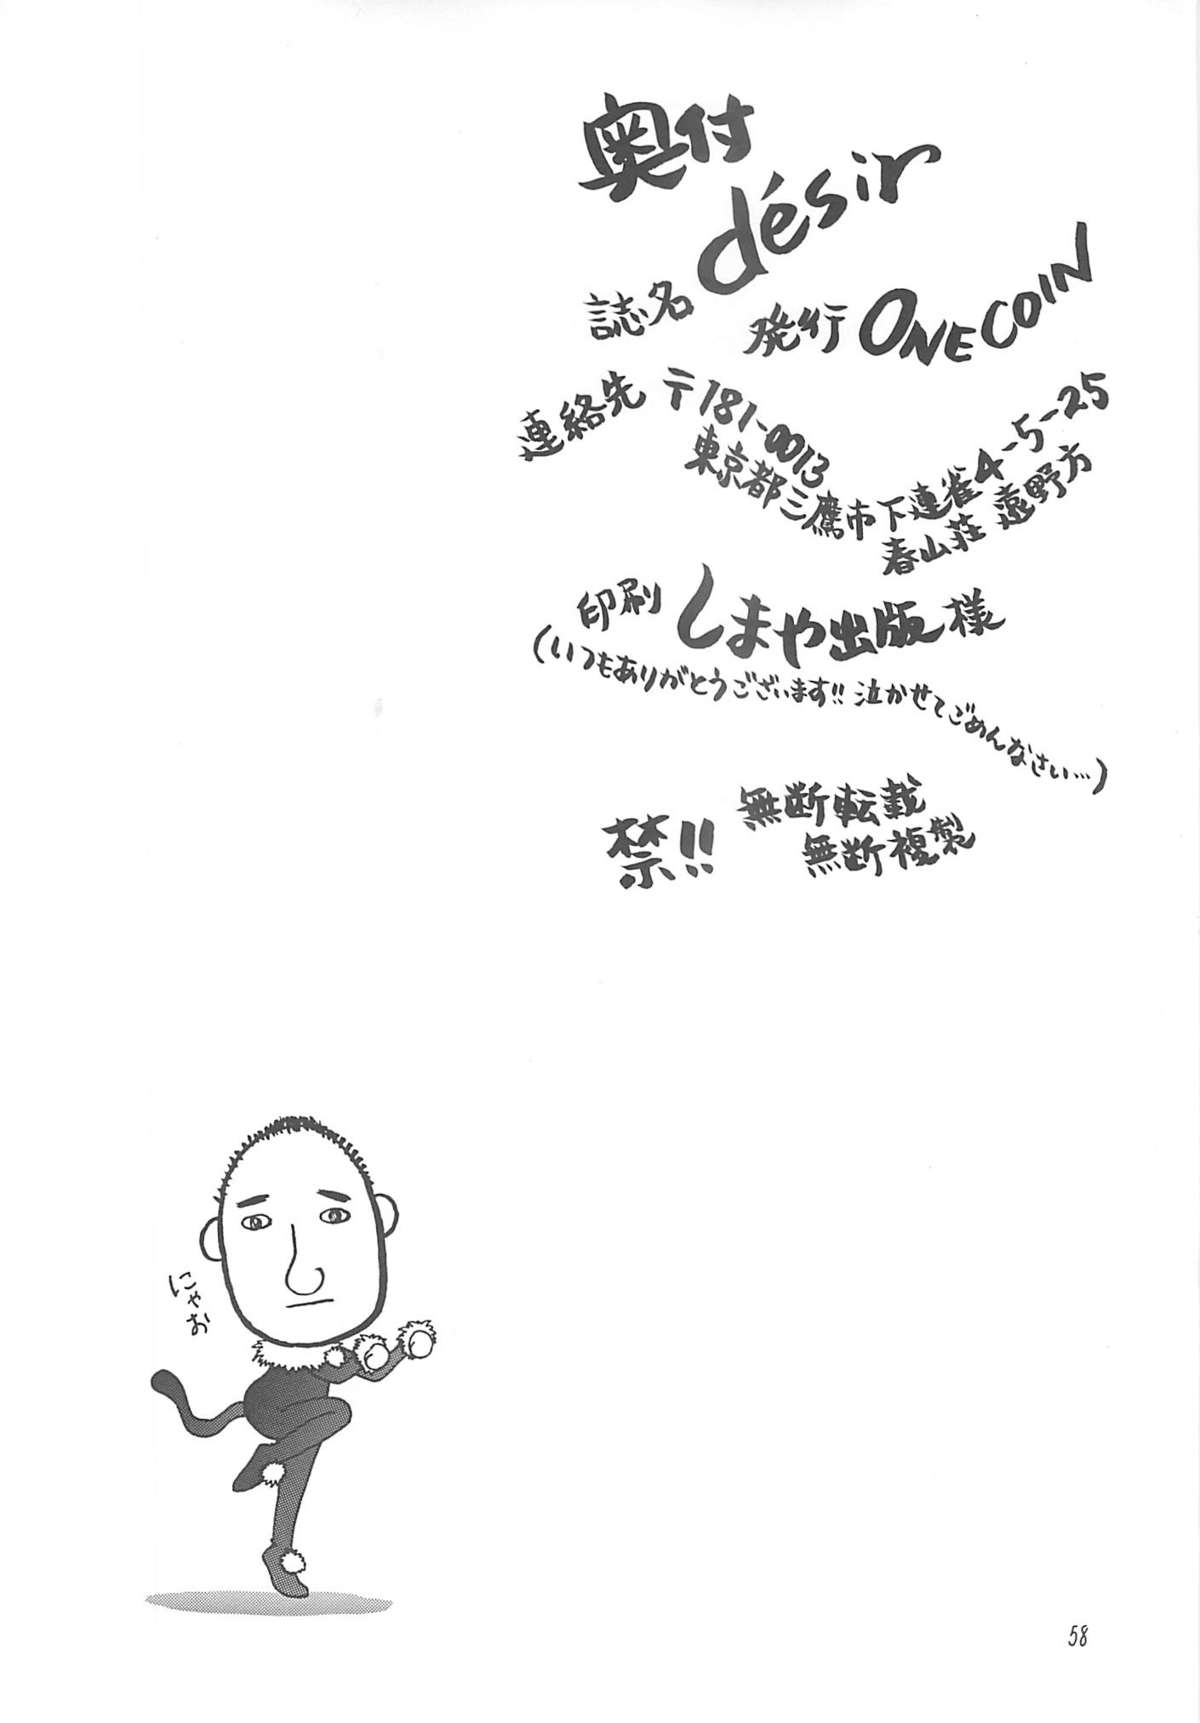 奥付
誌名 désir
発行 ONE COIN
連絡先 〒181-0013
東京都三鷹市下連雀4-5-25
春山荘 遠野方
印刷 しまや出版様
(いつもありがとうございます!! 泣かせてごめんなさい…)
禁!! 無断転載
無断複製
にゃお
58